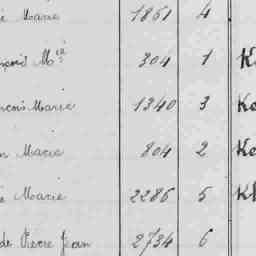 é Marie 1861 4
nçois Mie 304 1 Ke
ncois Marie 1340 3 Ke
n Marie 804 2 Ke
e Marie 2286 5 Kl
de Pierre Jean 2734 6